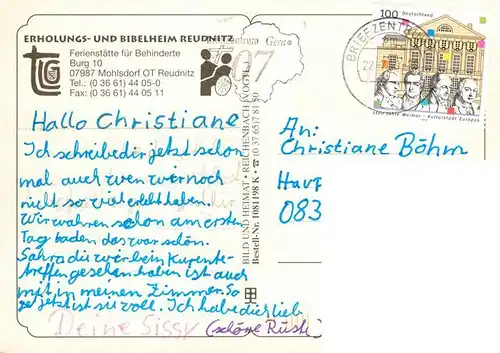 ERHOLUNGS- UND BIBELHEIM REUDNITZ
Ferienstätte für Behinderte
Burg 10
07987 Mohlsdorf OT Reudnitz
Tel.: (0 36 61) 44 05-0
Fax: (0 36 61) 44 05 11
Hallo Christiane
Ich schreibe dir jetzt schon
mal auch wen wir noch
nicht so viel erlebt haben.
Wir wahren schon am ersten
Tag baden das war schön.
Sahra die wir beim
treffen gesehen haben ist auch
mit in meinen Zimmer. So
jetzt ist zu voll. Ich habe dich lieb
Deine Sissy (schöne
BILD UND HEIMAT • REICHENBACH (VOGTL.)
Bestell-Nr. 1081198 K • ☎ (0 37 65) 7 81 50
Gera
07
BRIEFZENTRUM
100 Deutschland
1100 Jahre Weimar – Kulturstadt Europas
An:
Christiane Böhm
083